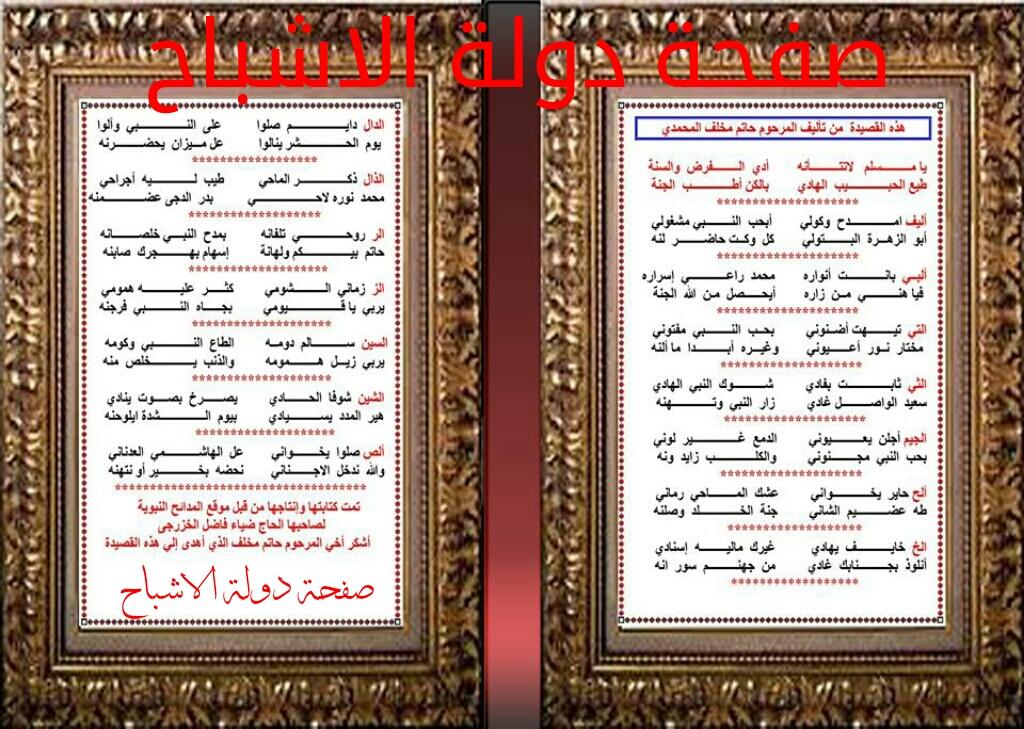 صفحة دولة الاشباح
هذه القصيدة من تأليف المرحوم حاتم مخلف المحمدي
يا مسلم لاتتأنه أدي الفرض والسنة
طيع الحبيب الهادي بالكن أطب الجنة
********************
أليف امدح وكولي أبحب النبي مشغولي
أبو الزهرة البتولي كل وكت حاضر لنه
********************
ألبي بانت أنواره محمد راعي إسراره
فيا هني من زاره أيحصل من الله الجنة
********************
التي تيهت أضنوني بحب النبي مفتوني
مختار نور أعيوني وغيره أبدا ما ألنه
********************
الثي ثابت بفادي شوك النبي الهادي
سعيد الواصل غادي زار النبي وتهنه
********************
الجيم أجلن يعيوني الدمع غير لوني
بحب النبي مجنوني والكلب زايد ونه
********************
ألح حاير يخواني عشك الماحي رماني
طه عضيم الشاني جنة الخلد وصلنه
********************
الخ خايف يهادي غيرك ماليه إسنادي
أنلوذ بجنابك غادي من جهنم سور انه
******************
الدال دايم صلوا على النبي وآلوا
يوم الحشر ينالوا عل ميزان يحضرنه
******************
الذال ذكر الماحي طيب ليه أجراحي
محمد نوره لاحي بدر الدجى عضمنه
*******************
الر روحي تلفانه بمدح النبي خلصانه
حاتم بيكم ولهانة إسهام بهجرك صابنه
********************
الز زماني الشومي كثر عليه همومي
يربي يا قيومي بجاه النبي فرجنه
********************
السين سالم دومه الطاع النبي وكومه
يربي زيل همومه والذنب يخلص منه
********************
الشين شوفا الحادي يصرخ بصوت ينادي
هير المدد يسيادي بيوم الشدة ايلوحنه
********************
ألص صلوا يخواني عل الهاشمي العدناني
والله ندخل الاجناني نحضه بخير أو نتهنه
************************************
تمت كتابتها وإنتاجها من قبل موقع المدائح النبوية
لصاحبها الحاج ضياء فاضل الخزرجى
أشكر أخي المرحوم حاتم مخلف الذي أهدى إلي هذه القصيدة
صفحة دولة الاشباح